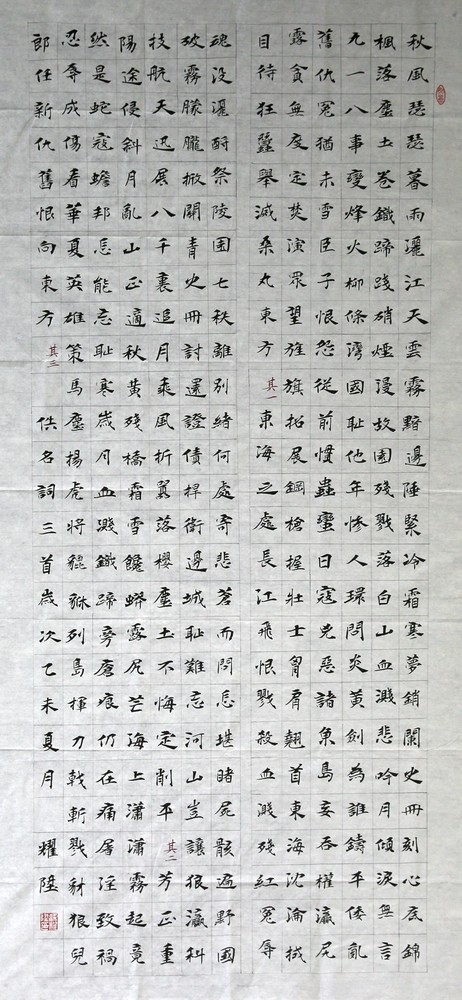 秋風瑟瑟暮雨灑江天雲霧黯邊陲緊冷霜寒夢銷關史冊刻心底錦
楓落塵土卷鐵蹄踐硝煙漫故園殘戮落白山血濺悲吟月傾淚無言
九一八事變烽火柳條灣國恥他年慘人環問炎黃劍為誰鑄平倭亂
舊仇冤猶未雪臣子恨怨從前慣蟲蠻日寇兇惡諸梟島妄吞權瀛尻
露貪無度定焚演眾望旌旗拓展鋼槍握壯士胷肩翹首東海沈淪
目待狂蠶舉滅桑丸東方其一東海之處長江飛恨戮殺血濺殘紅冤辱
魂沒灑酹祭陵園七秩離別緒何處寄悲蒼而問忍堪睹屍骸遍野國
破霧朦朧掀開青史冊討還證債捍衛邊城恥難忘河山豈讓狼瀛糾
技航天迅展八千裏追月乘風折翼落櫻塵土不悔定削平其二芳正重
陽途侵斜月亂山正適秋黃殘橋霜雪饞蟒露尻芒海上瀟瀟霧起竟
然是蛇寇蟾邦忍能忘恥寒歲月血濺鐵蹄旁瘡痕仍在痛屠淫致禍
忍辱成傷看華夏英雄策馬塵揚虎將貔貅列島揮刀戟斬戮豺狼兒
郎任新仇舊恨向東方其三佚名詞三首歲次乙未夏月耀陞